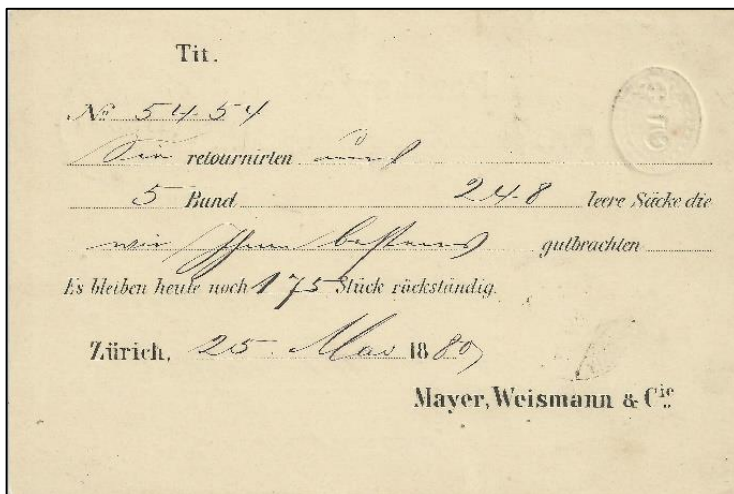 Tit.
No 5454
Sie retournirten uns
5 Bund 248 leere Säcke die
wir Ihnen bestens gutbrachten
Es bleiben heute noch 175 Stück rückständig.
Zürich, 25. Mai 1880
Mayer, Weismann & Cie